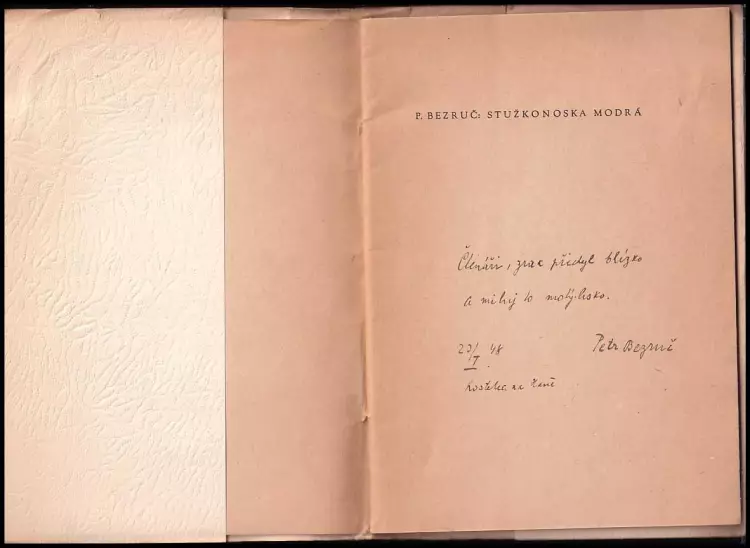 P. BEZRUČ: STUŽKONOSKA MODRÁ
Čtenáři, zrak přichyl blízko
a miluj to motýlisko.
23/I 48 Petr Bezruč
Kostelec na Hané